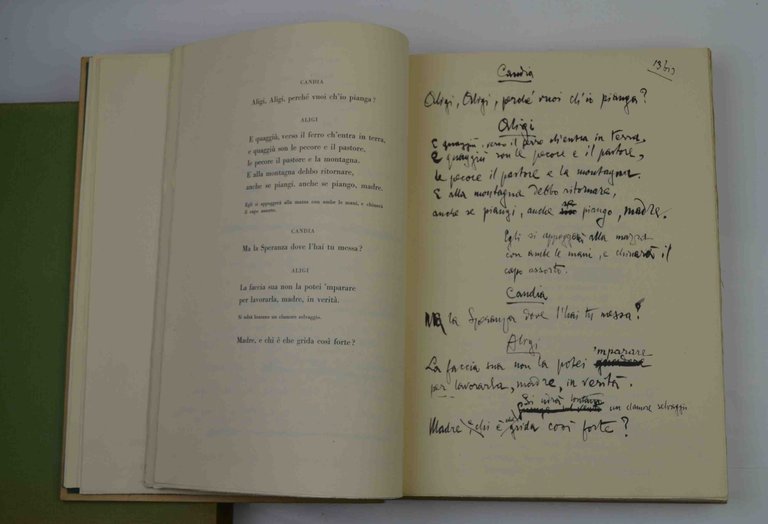 CANDIA
Aligi, Aligi, perché vuoi ch'io pianga ?
ALIGI
E quaggiù, verso il ferro ch'entra in terra,
e quaggiù son le pecore e il pastore,
le pecore il pastore e la montagna.
E alla montagna debbo ritornare,
anche se piangi, anche se piango, madre.
Egli si appoggerà alla mazza con ambe le mani, e chinerà
il capo assorto.
CANDIA
Ma la Speranza dove l'hai tu messa ?
ALIGI
La faccia sua non la potei 'mparare
per lavorarla, madre, in verità.
Si udrà lontano un clamore selvaggio.
Madre, e chi è che grida così forte ?
Candia
Aligi, Aligi, perché vuoi ch'io pianga?
Aligi
E quaggiù verso il ferro ch'entra in terra,
e quaggiù son le pecore e il pastore,
le pecore il pastore e la montagna.
E alla montagna debbo ritornare,
anche se piangi, anche se piango, madre.
Egli si appoggerà alla mazza
con ambe le mani, e chinerà il
capo assorto.
Candia
Ma la Speranza dove l'hai tu messa?
Aligi
'mparare
La faccia sua non la potei
per lavorarla, madre, in verità.
Si udrà lontano
un clamore selvaggio
Madre chi è grida così forte?